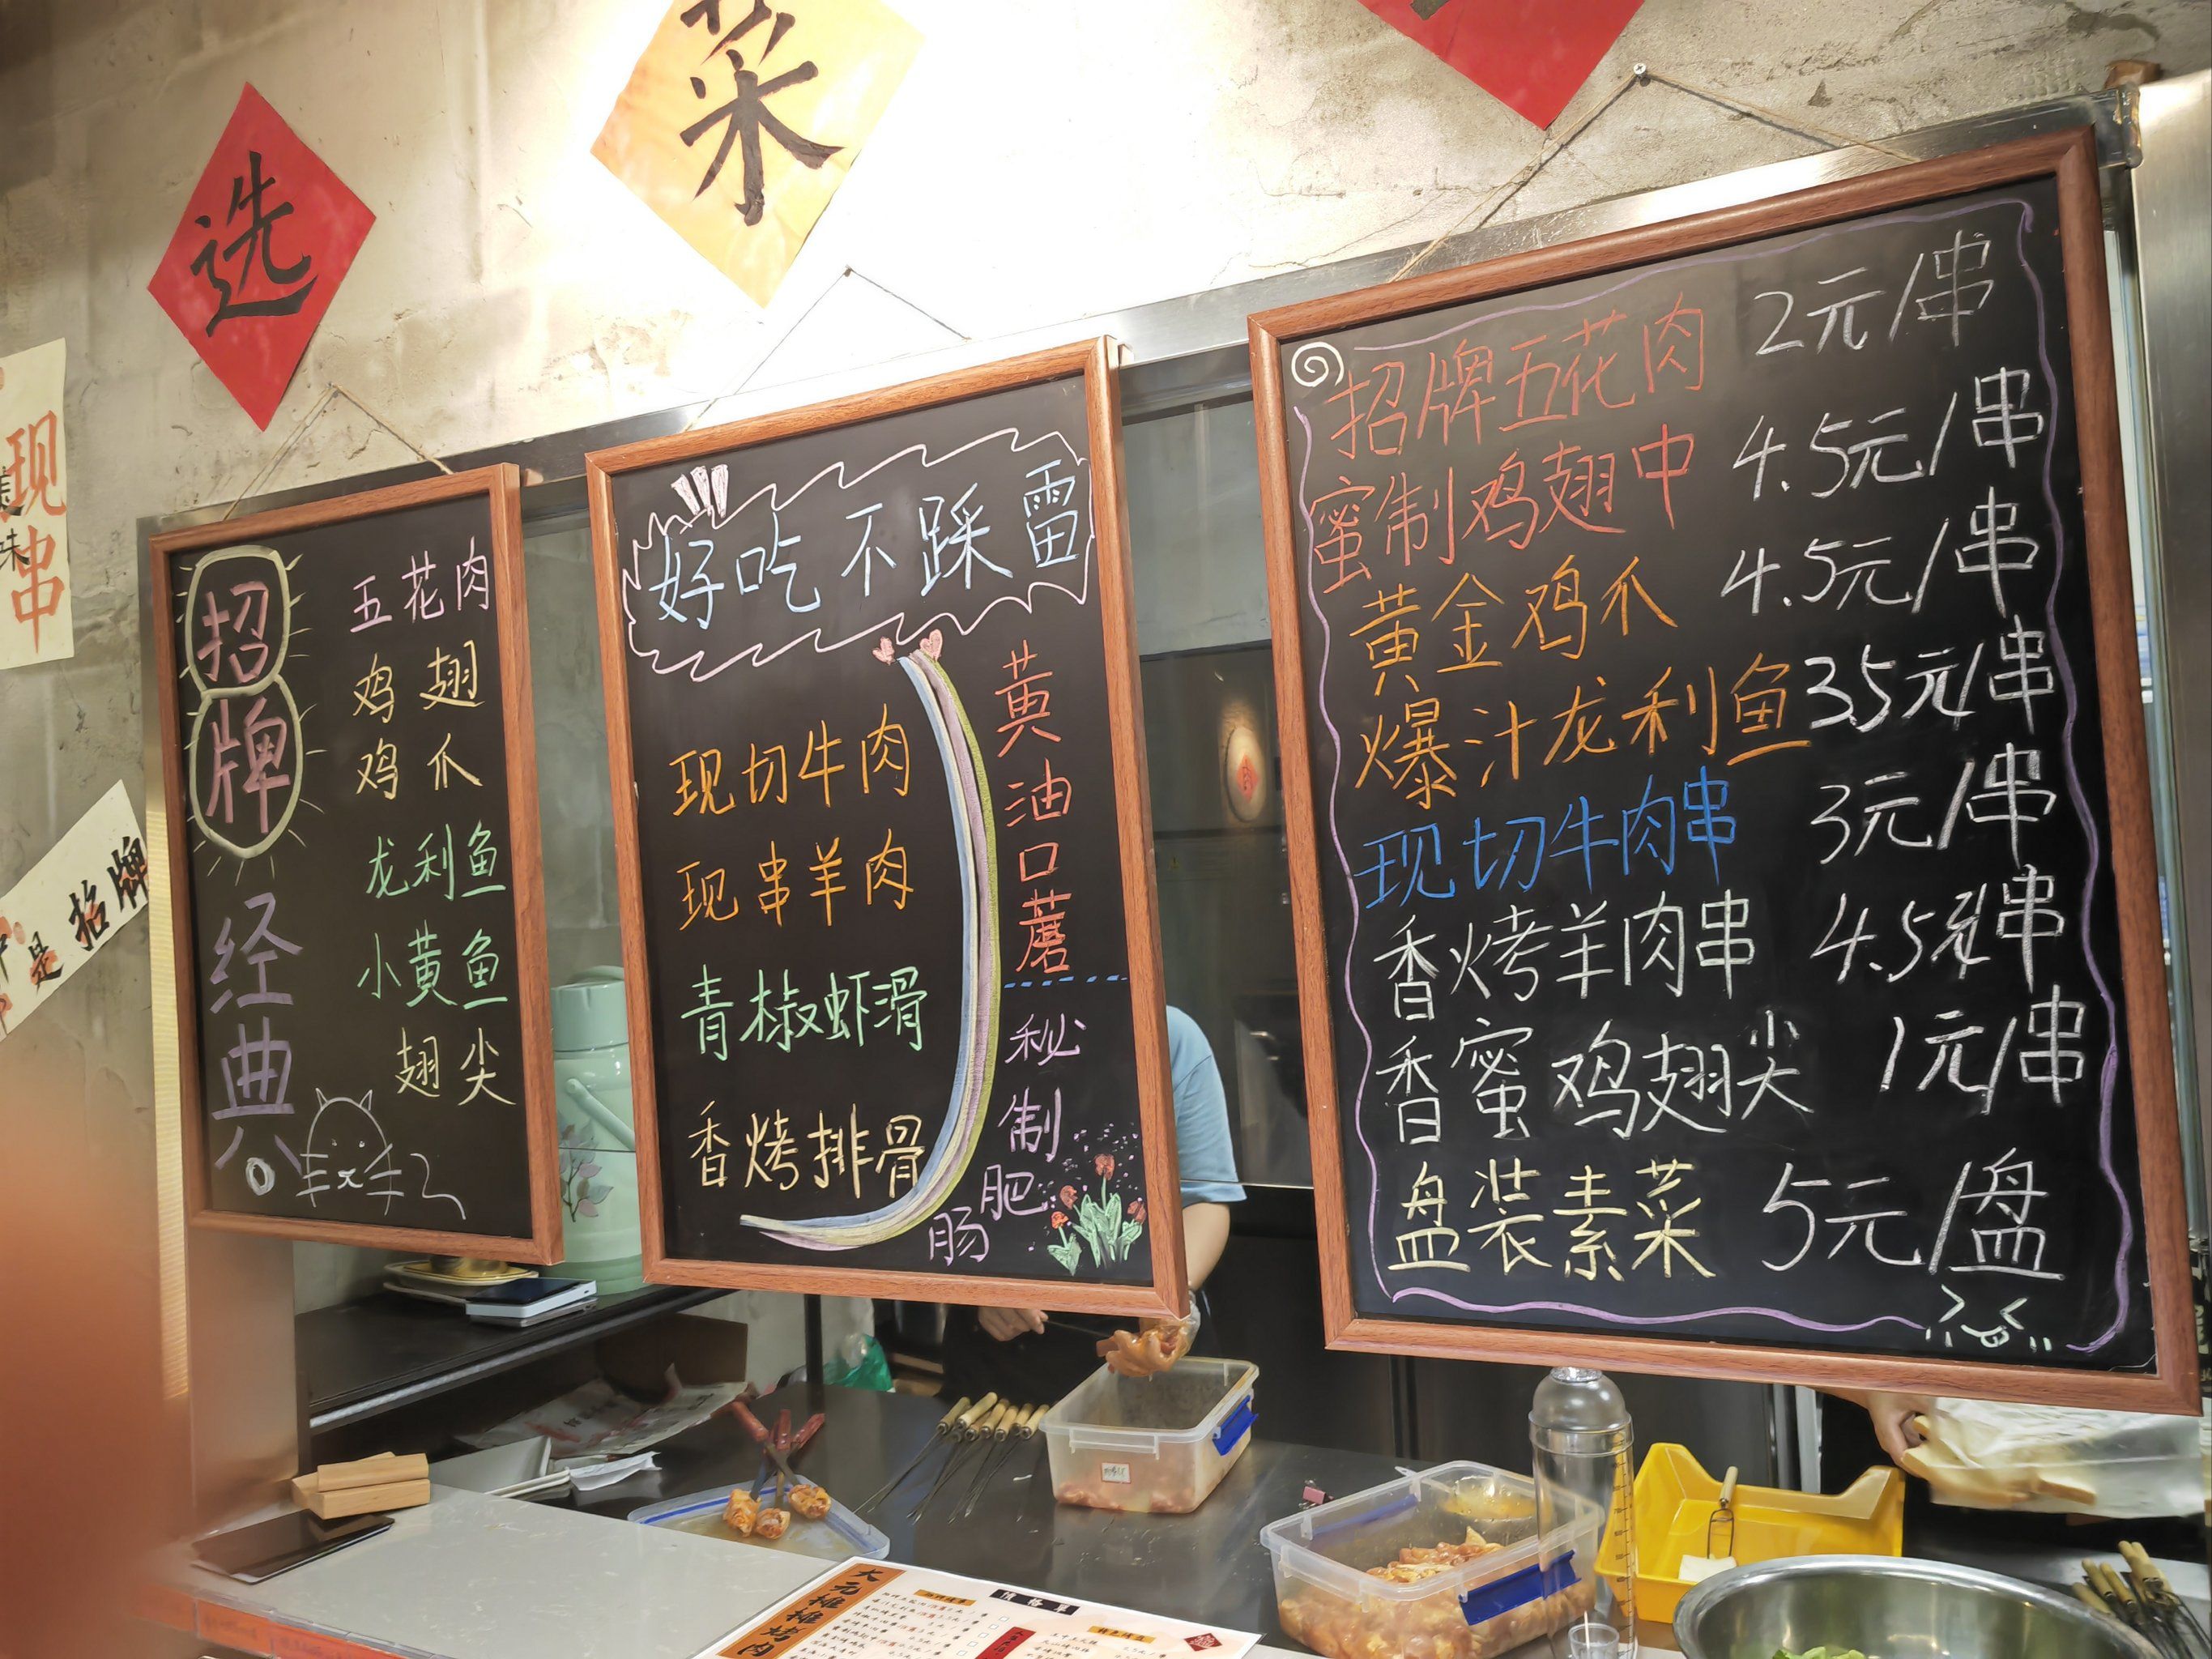 选
菜
现串
味
是招牌
招牌
经典
五花肉
鸡翅
鸡爪
龙利鱼
小黄鱼
翅尖
好吃不踩雷
现切牛肉
现串羊肉
青椒虾滑
香烤排骨
黄油口蘑
秘制肥肠
招牌五花肉 2元/串
蜜制鸡翅中 4.5元/串
黄金鸡爪 4.5元/串
爆汁龙利鱼 35元/串
现切牛肉串 3元/串
香烤羊肉串 4.5元/串
香蜜鸡翅尖 1元/串
盘装素菜 5元/盘
大元摊摊烤肉